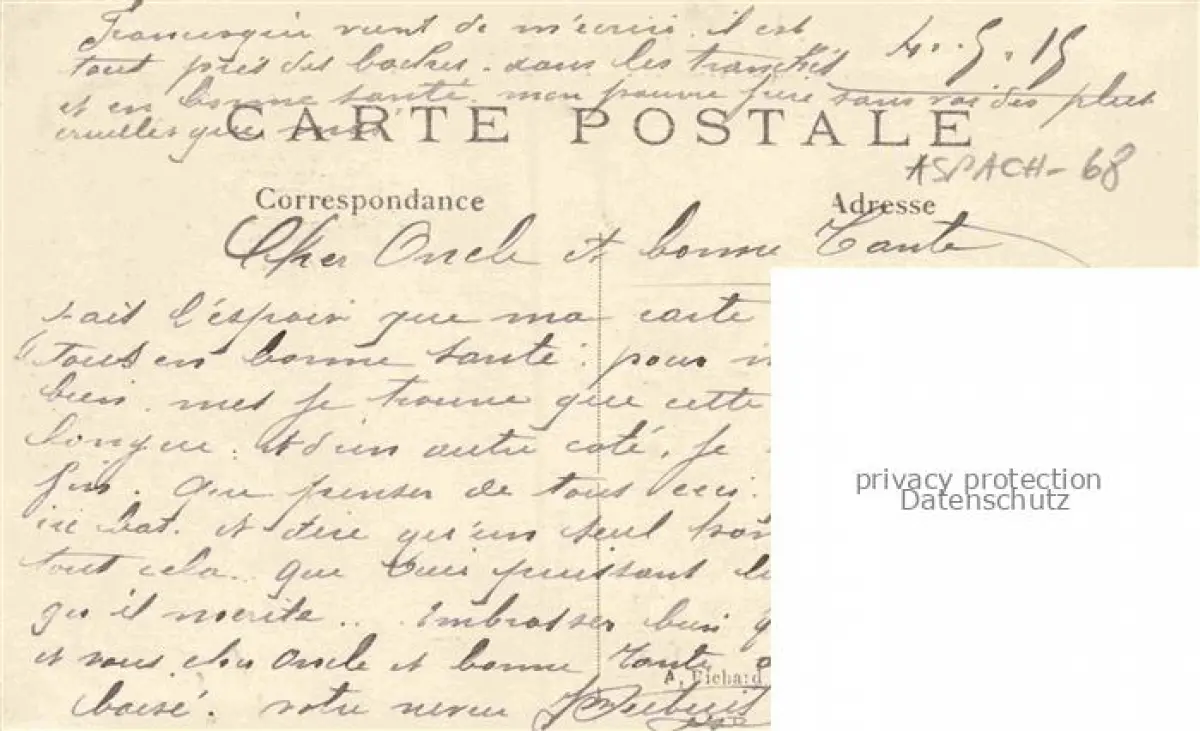 vient de m'écrire. il est
tout près des boches. dans les tranchés
4. 5. 15
et en bonne santé. mon pauvre des plus
cruelles que
CARTE POSTALE
ASPACH - 68
Correspondance
Adresse
Cher Oncle et bonne Tante
l'espoir que ma carte
tous en bonne santé: pour
bien. mes je trouve que cette
longue: et d'un autre coté, je
fin. Que penser de tous ceci.
bat. et dire qu'un seul
tout cela. que puissant
qu'il merite.. Embrasser bien
et vous cher Oncle et bonne Tante
A. Richard
baisé. votre neveu
privacy protection
Datenschutz